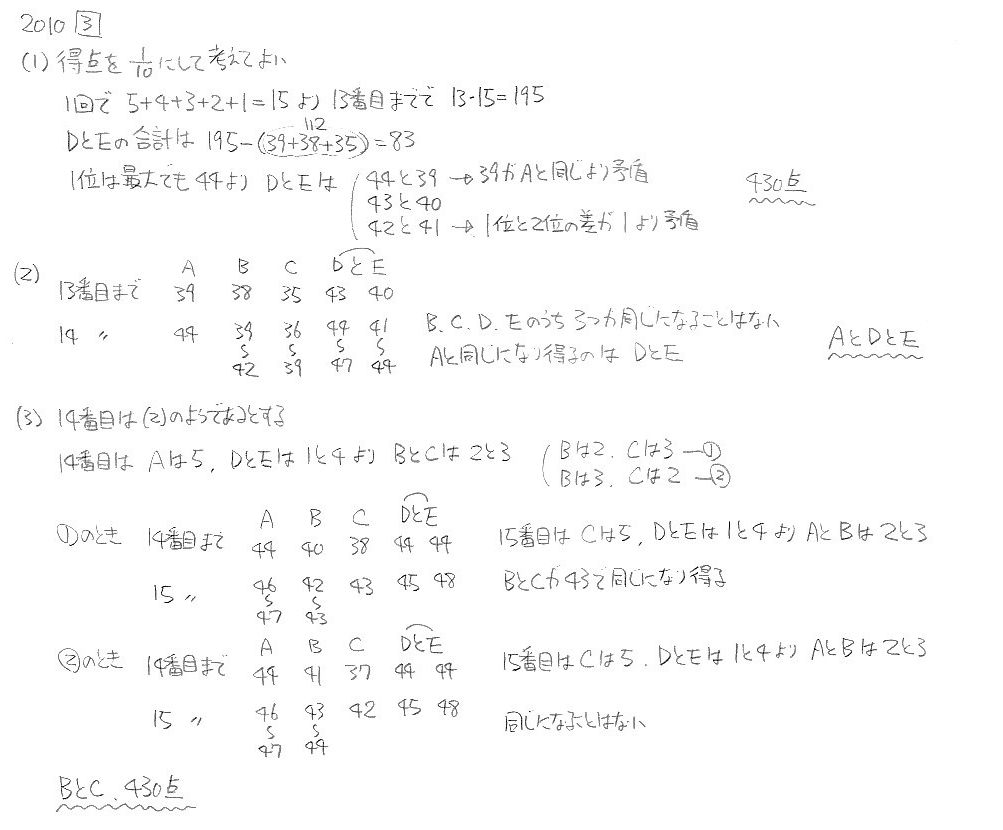 2010 3
(1) 得点を 1/10 にして考えてよい
1回で 5+4+3+2+1=15 より 13番目までで 13・15=195
112
DとEの合計は 195-(39+38+35)=83
1位は最大でも44より DとEは 44と39 → 39がAと同じより矛盾
43と40
42と41 → 1位と2位の差が1より矛盾
430点
(2) A B C DとE
13番目まで 39 38 35 43 40
14 〃 44 39 36 44 41 B、C、D、Eのうち3つが同じになることはない
42 39 47 44 Aと同じになり得るのは DとE
AとDとE
(3) 14番目は(2)のようであるとする
14番目は Aは5、DとEは1と4より BとCは2と3 Bは2、Cは3 ―①
Bは3、Cは2 ―②
A B C DとE
①のとき 14番目まで 44 40 38 44 44 15番目は Cは5、DとEは1と4より AとBは2と3
15 〃 46 42 43 45 48 BとCが43で同じになり得る
47 43
A B C DとE
②のとき 14番目まで 44 41 37 44 44 15番目はCは5、DとEは1と4より AとBは2と3
15 〃 46 43 42 45 48 同じになることはない
47 44
BとC、430点